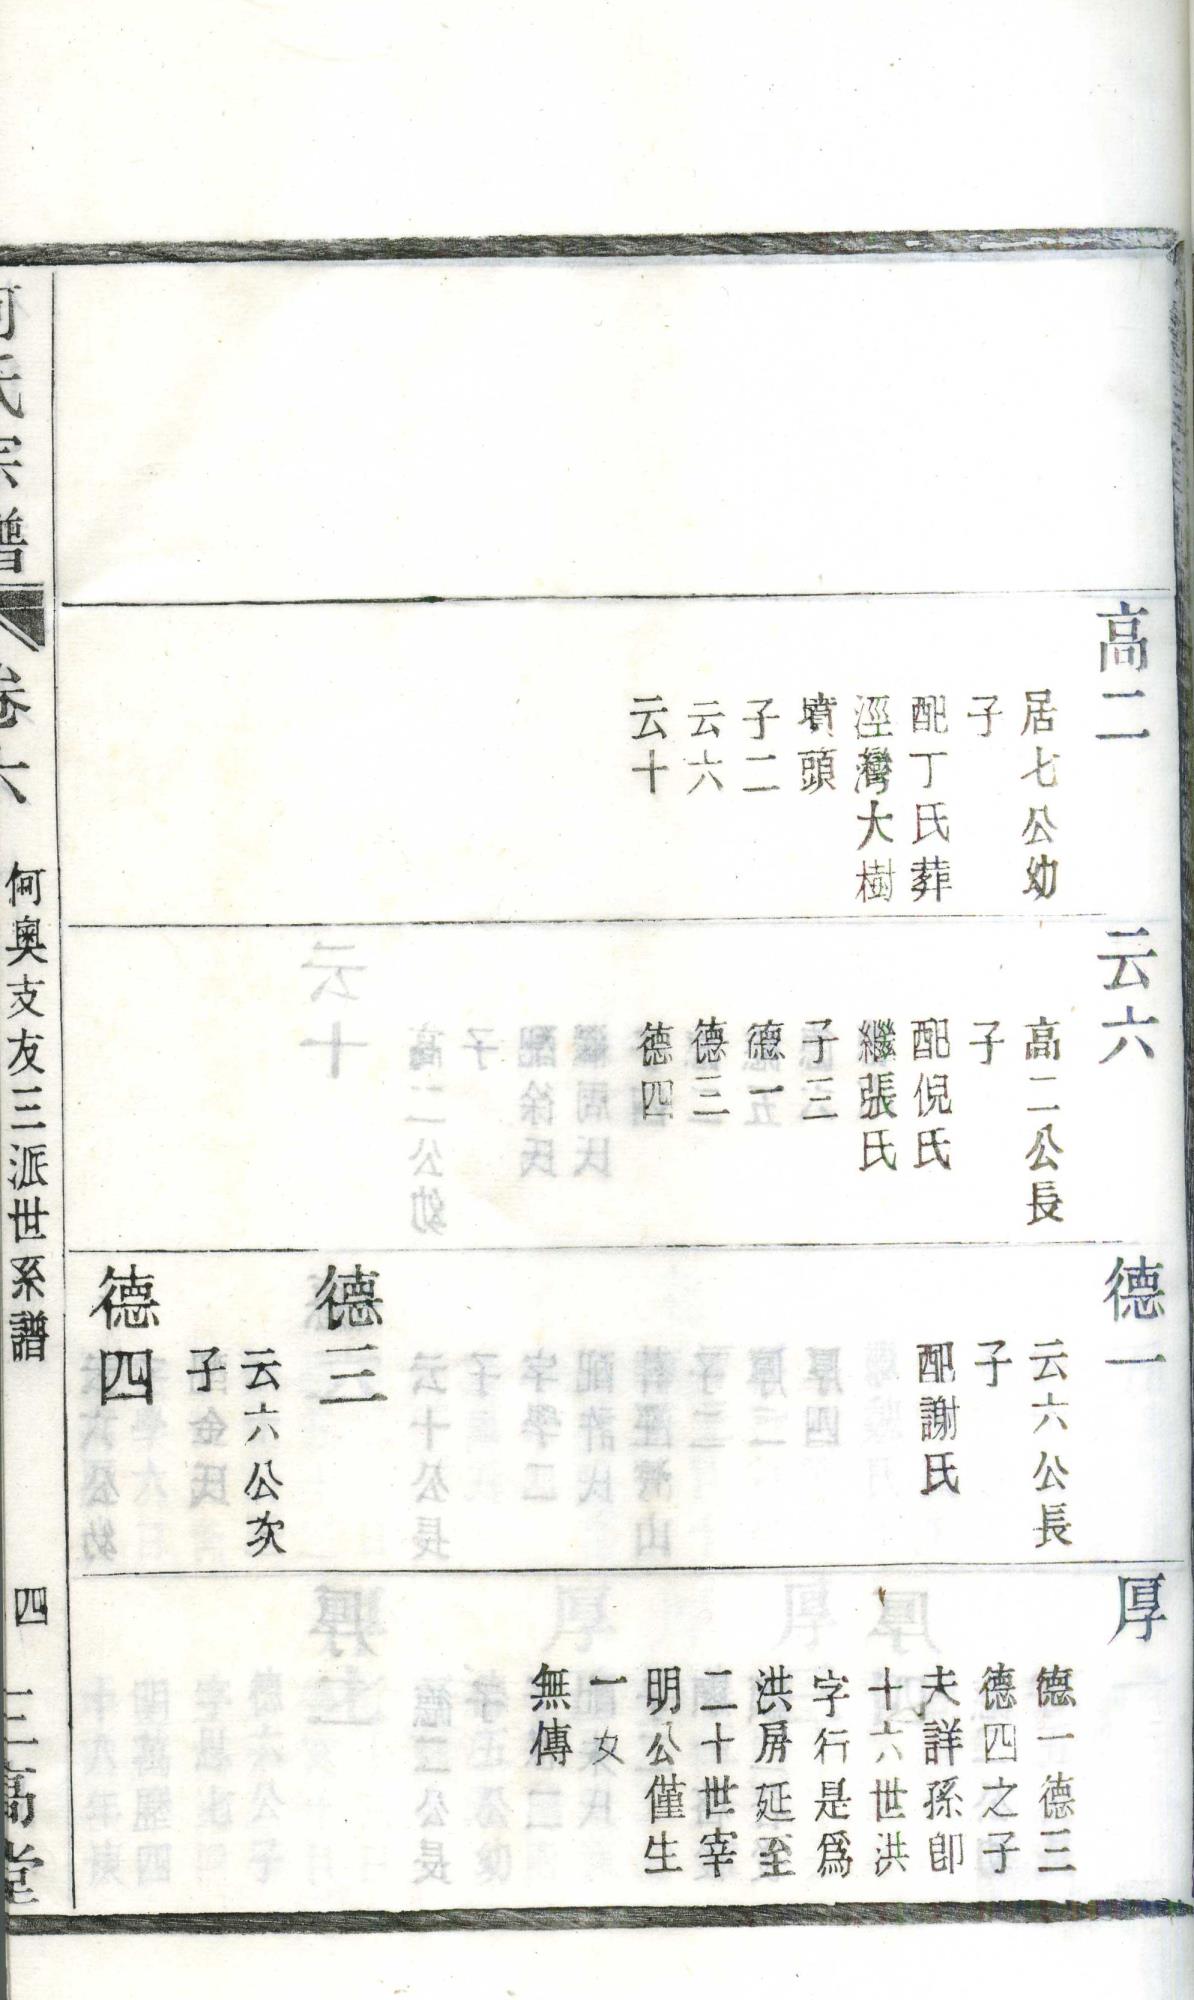 高二
居七公幼
子
配丁氏葬
涇灣大樹
墳頭
子二
云六
云十
云六
高二公長
子
配倪氏
繼張氏
子三
德一
德三
德四
德一
云六公長
子
配謝氏
德三
云六公次
子
德四
厚
德一德三
德四之子
失詳孫卽
十六世洪
字行是爲
洪房延至
二十世宰
明公僅生
一女
無傳
何氏宗譜
卷六
何奧支友三派世系譜
四
三高堂